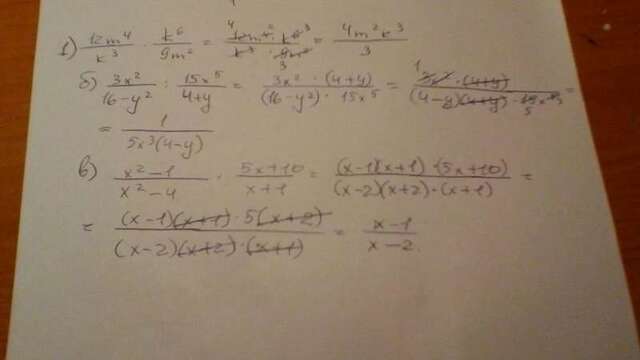 1) 12m⁴/k³ · k⁶/9m² = 12m⁴ · k⁶/k³ · 9m² = 4m²k³/3
б) 3x²/16-y² : 15x⁵/4+y = 3x² · (4+y)/(16-y²) · 15x⁵ = 3x² · (4+y)/(4-y)(4+y) · 15x⁵ =
= 1/5x³(4-y)
в) x²-1/x²-4 · 5x+10/x+1 = (x-1)(x+1) · (5x+10)/(x-2)(x+2) · (x+1) =
= (x-1)(x+1) · 5(x+2)/(x-2)(x+2) · (x+1) = x-1/x-2.